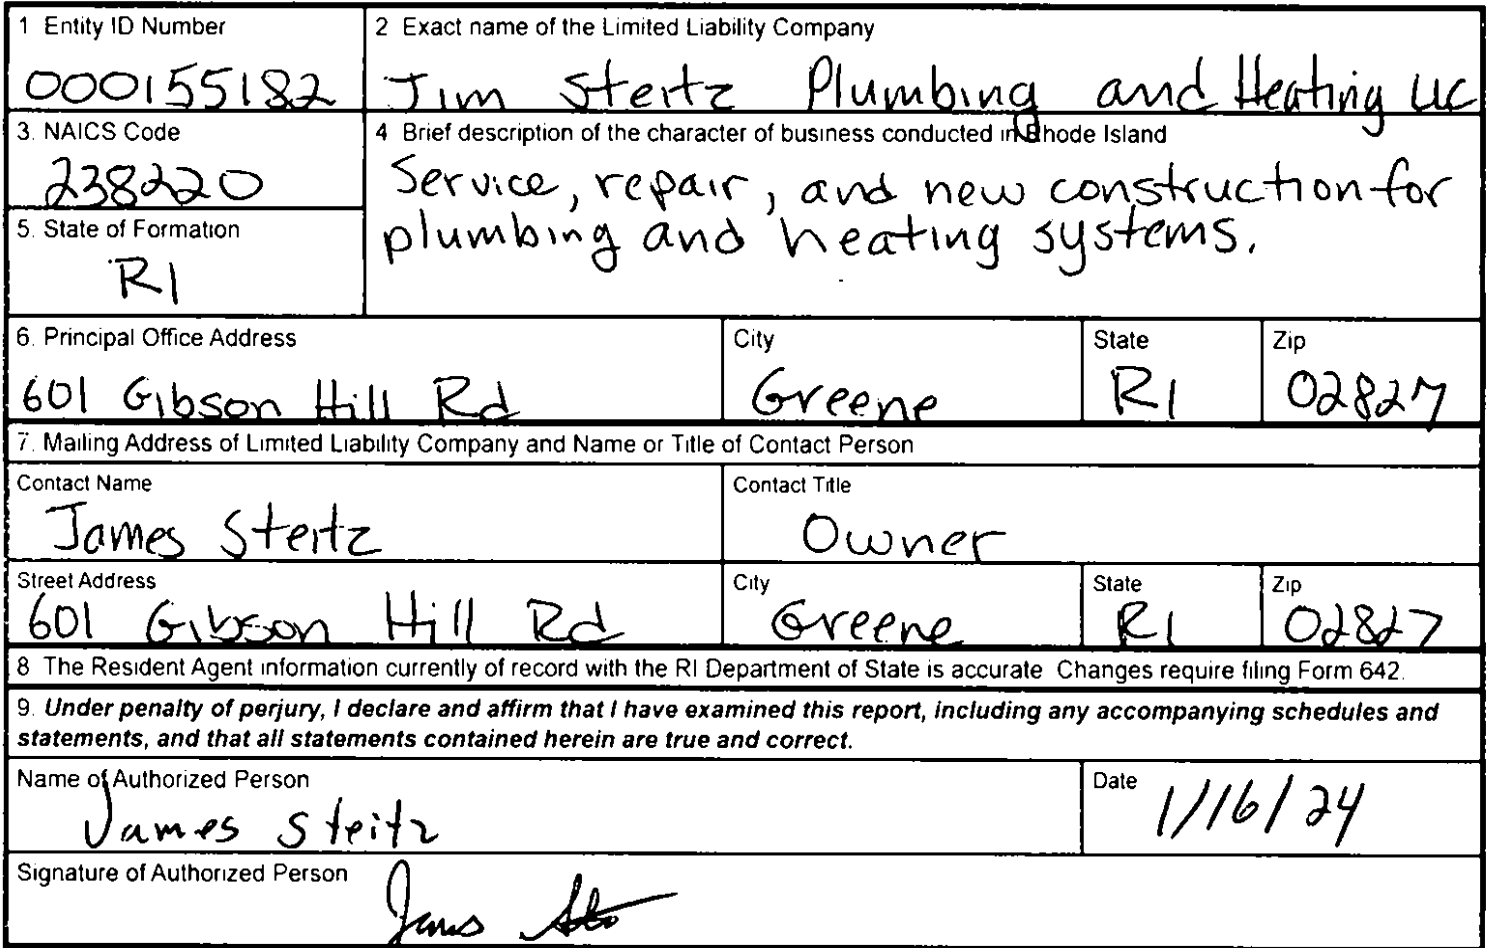 1 Entity ID Number
000155182
2 Exact name of the Limited Liability Company
Jim Steitz Plumbing and Heating LLC
3. NAICS Code
238220
4 Brief description of the character of business conducted in Rhode Island
Service, repair, and new construction for
plumbing and heating systems.
5. State of Formation
RI
6. Principal Office Address
601 Gibson Hill Rd
City
Greene
State
RI
Zip
02827
7. Mailing Address of Limited Liability Company and Name or Title of Contact Person
Contact Name
James Steitz
Contact Title
Owner
Street Address
601 Gibson Hill Rd
City
Greene
State
RI
Zip
02827
8 The Resident Agent information currently of record with the RI Department of State is accurate Changes require filing Form 642.
9. Under penalty of perjury, I declare and affirm that I have examined this report, including any accompanying schedules and
statements, and that all statements contained herein are true and correct.
Name of Authorized Person
James Steitz
Date
1/16/24
Signature of Authorized Person